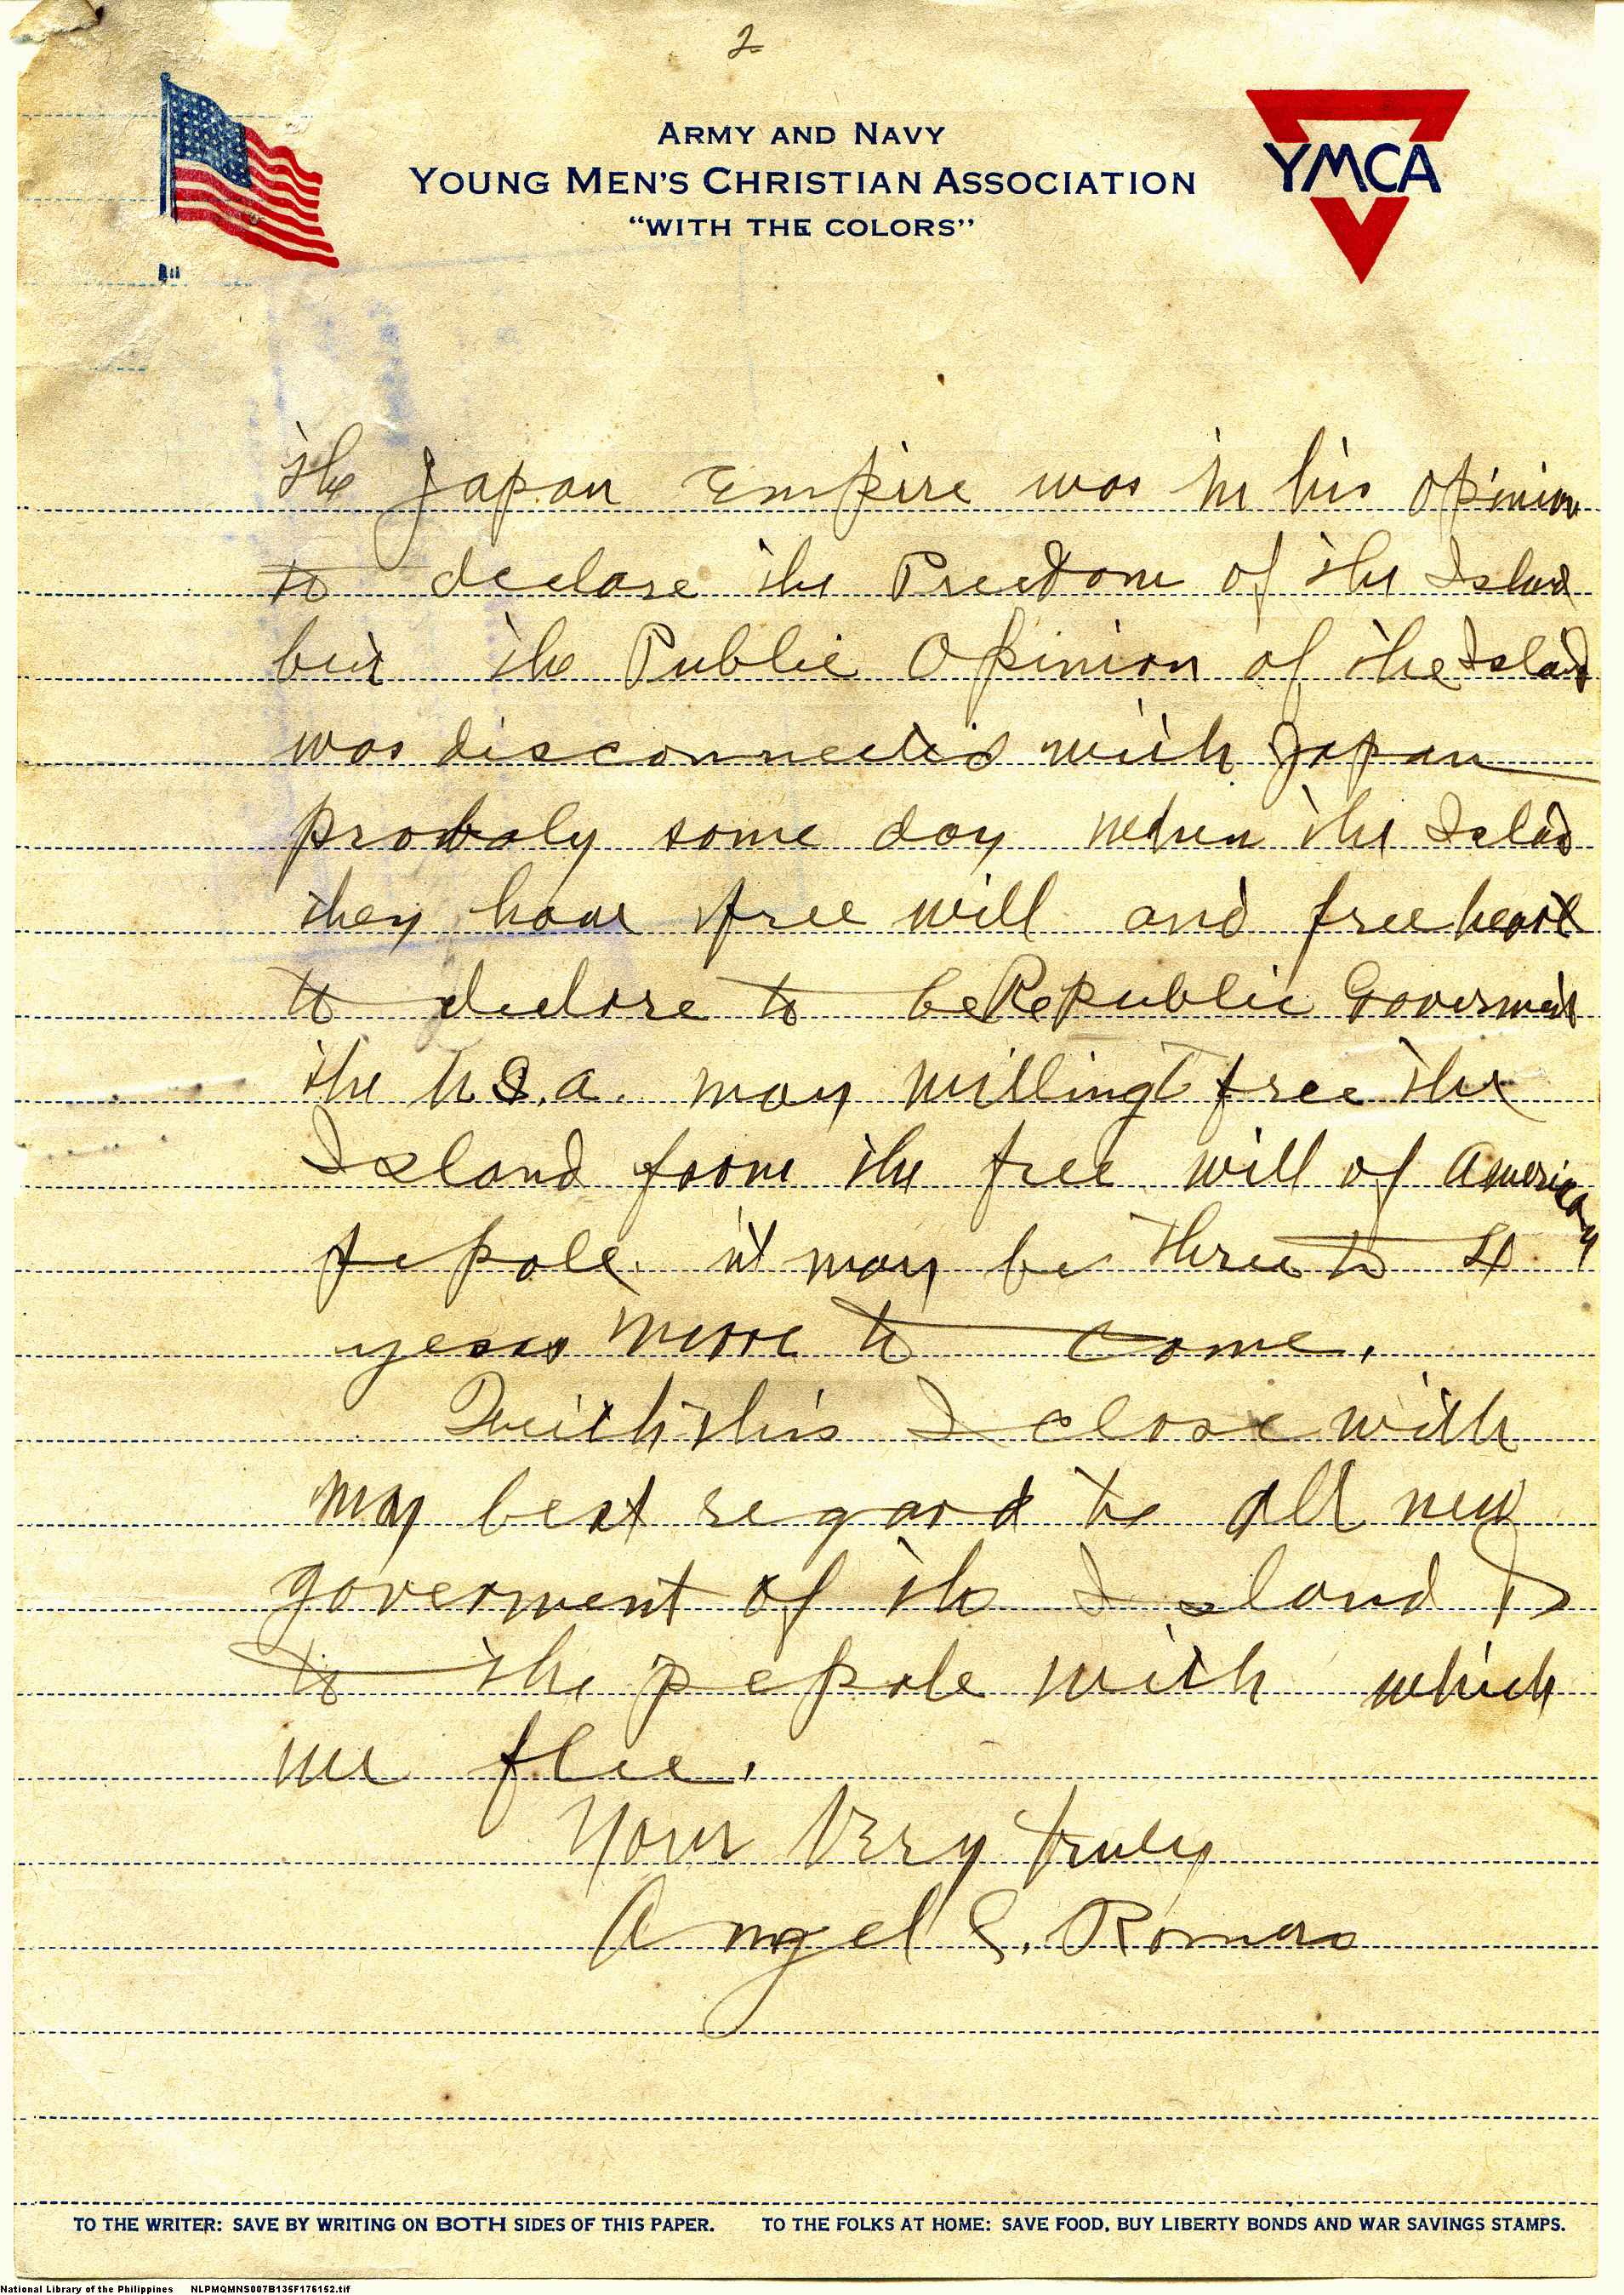 2
ARMY AND NAVY
YOUNG MEN'S CHRISTIAN ASSOCIATION
"WITH THE COLORS"
YMCA
the Japan Empire was in his opinion
to declare the Freedom of the Island
but the Public Opinion of the Island
was disconnected with Japan
probaly some day when the Island
they have free will and free heart
to declare to be Republic Goverment
the U.S.A. may willingt free the
Island from the free will of American
pepole. it may be three to
years more to come.
With this I close with
my best regard to all new
goverment of the Island &
to the pepole with which
we flee.
Your Very truly
Angel S. Romero
TO THE WRITER: SAVE BY WRITING ON BOTH SIDES OF THIS PAPER. TO THE FOLKS AT HOME: SAVE FOOD, BUY LIBERTY BONDS AND WAR SAVINGS STAMPS.
National Library of the Philippines NLPMQMNS007B135F176152.tif